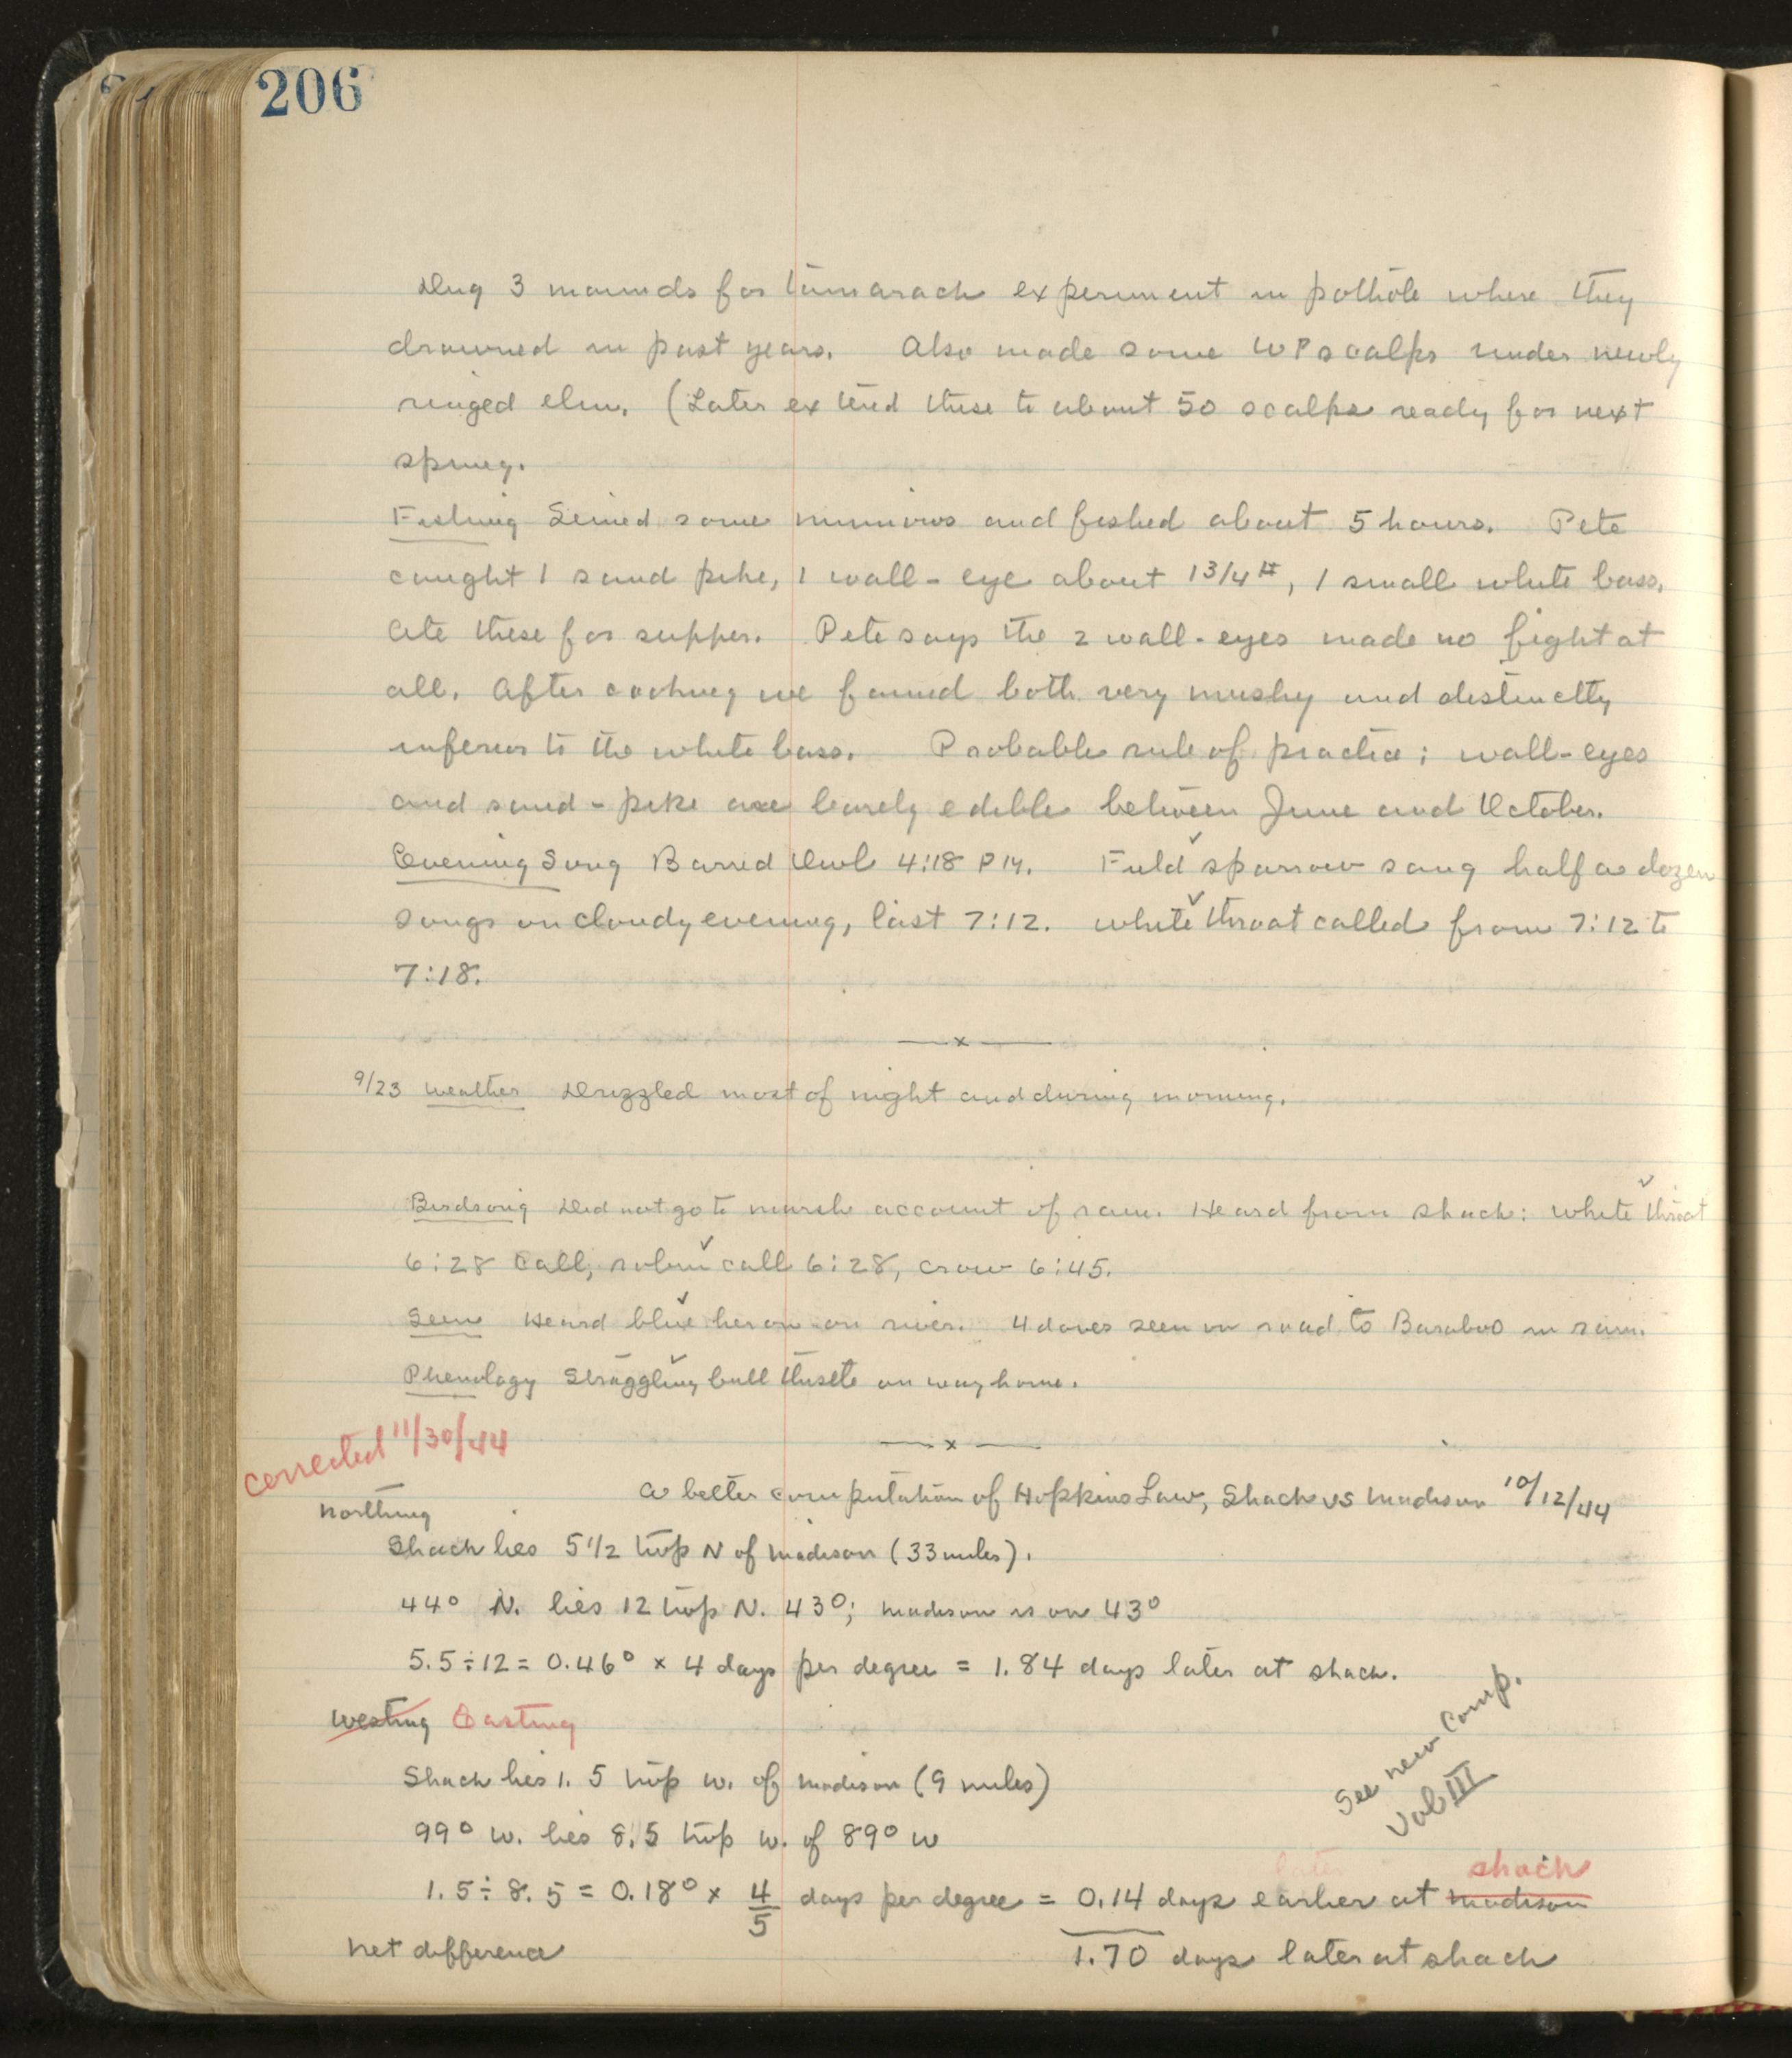 206
Dug 3 mounds for tamarack experiment in pothole where they
drowned in past years. Also made some WP scalps under newly
ringed elm. (Later extend these to about 50 scalps ready for next
spring.
Fishing Seined some minnows and fished about 5 hours. Pete
caught 1 sand pike, 1 wall-eye about 1 3/4 #, 1 small white bass.
Ate these for supper. Pete says the 2 wall-eyes made no fight at
all. After cooking we found both very mushy and distinctly
inferior to the white bass. Probable rule of practice: wall-eyes
and sand-pike are barely edible between June and October.
Evening Song Barred Owl 4:18 PM. Field ✓ sparrow sang half a dozen
songs on cloudy evening, last 7:12. White ✓ throat called from 7:12 to
7:18.
—x—
9/23 Weather Drizzled most of night and during morning.
Birdsong Did not go to marsh account of rain. Heard from shack: white ✓ throat
6:28 call, robin ✓ call 6:28, crow 6:45.
Seen Heard blue ✓ heron on river. 4 doves seen on road to Baraboo in rain.
Phenology Straggling ✓ bull thistle on way home.
—x—
corrected 11/30/44
A better computation of Hopkins Law, Shack vs Madison 10/12/44
Northing
Shack lies 5 1/2 twp N of Madison (33 miles).
44° N. lies 12 twp N. 43°; Madison is on 43°
5.5 ÷ 12 = 0.46° x 4 days per degree = 1.84 days later at shack.
Westing Easting
Shack lies 1.5 twp W. of Madison (9 miles)
99° W. lies 8.5 twp W. of 89° W
See new Comp.
Vol III
later shack
1.5 ÷ 8.5 = 0.18° x 4/5 days per degree = 0.14 days earlier at Madison
Net difference 1.70 days later at shack